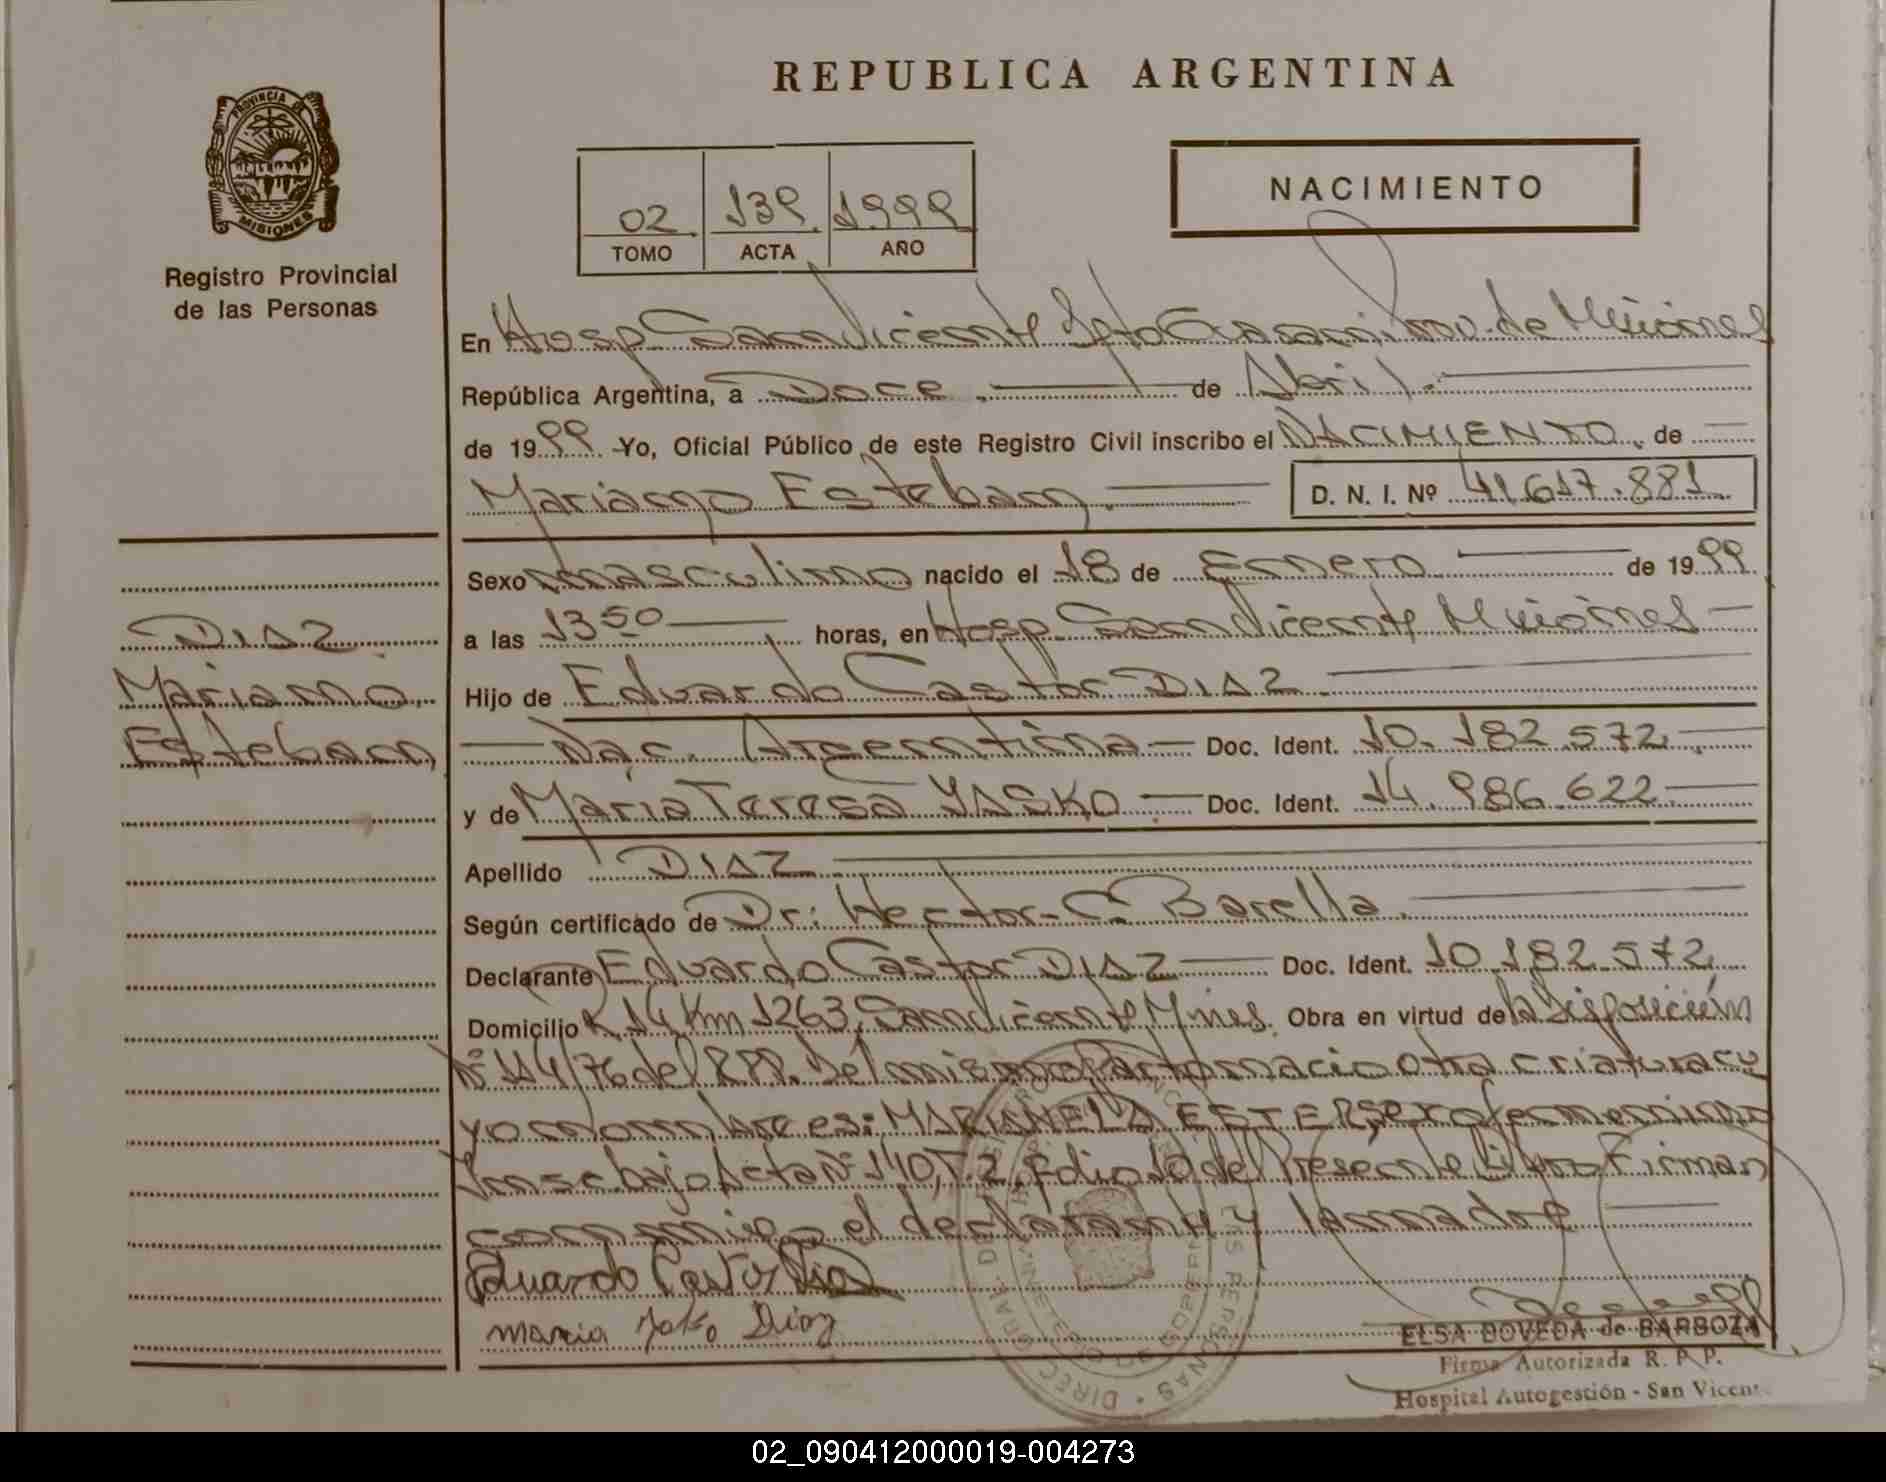 REPUBLICA ARGENTINA
PROVINCIA DE
MISIONES
Registro Provincial
de las Personas
02 139 1999
TOMO ACTA AÑO
NACIMIENTO
En Hosp. San Vicente Dpto Guarani Prov. de Misiones
República Argentina, a Doce de Abril
de 1999 Yo, Oficial Público de este Registro Civil inscribo el NACIMIENTO de
Mariano Esteban D. N. I. Nº 41.617.881
Sexo masculino nacido el 18 de Enero de 1999
a las 13 50 horas, en Hosp. San Vicente Misiones
Hijo de Eduardo Castor DIAZ
Nac. Argentina Doc. Ident. 10.182.572
y de Maria Teresa YASKO Doc. Ident. 14.986.622
Apellido DIAZ
Según certificado de Dr: Hector C. Barella
Declarante Eduardo Castor DIAZ Doc. Ident. 10.182.572
Domicilio R 14 Km 1263, San Vicente Mnes. Obra en virtud de la Disposición
Nº 114/76 del R.P.P. Del mismo Parto nacio otra criatura cu
yo nombre es: MARIANELA ESTER sexo femenino
Insc. bajo Acta Nº 140, T. 2, Folio 10 del Presente Libro Firman
conmigo el declarante y la madre
Eduardo Castor Diaz
Maria Yasko Diaz
ELSA DOVEDA de BARBOZA
Firma Autorizada R. P. P.
Hospital Autogestión - San Vicente
DIAZ
Mariano
Esteban
02_090412000019-004273